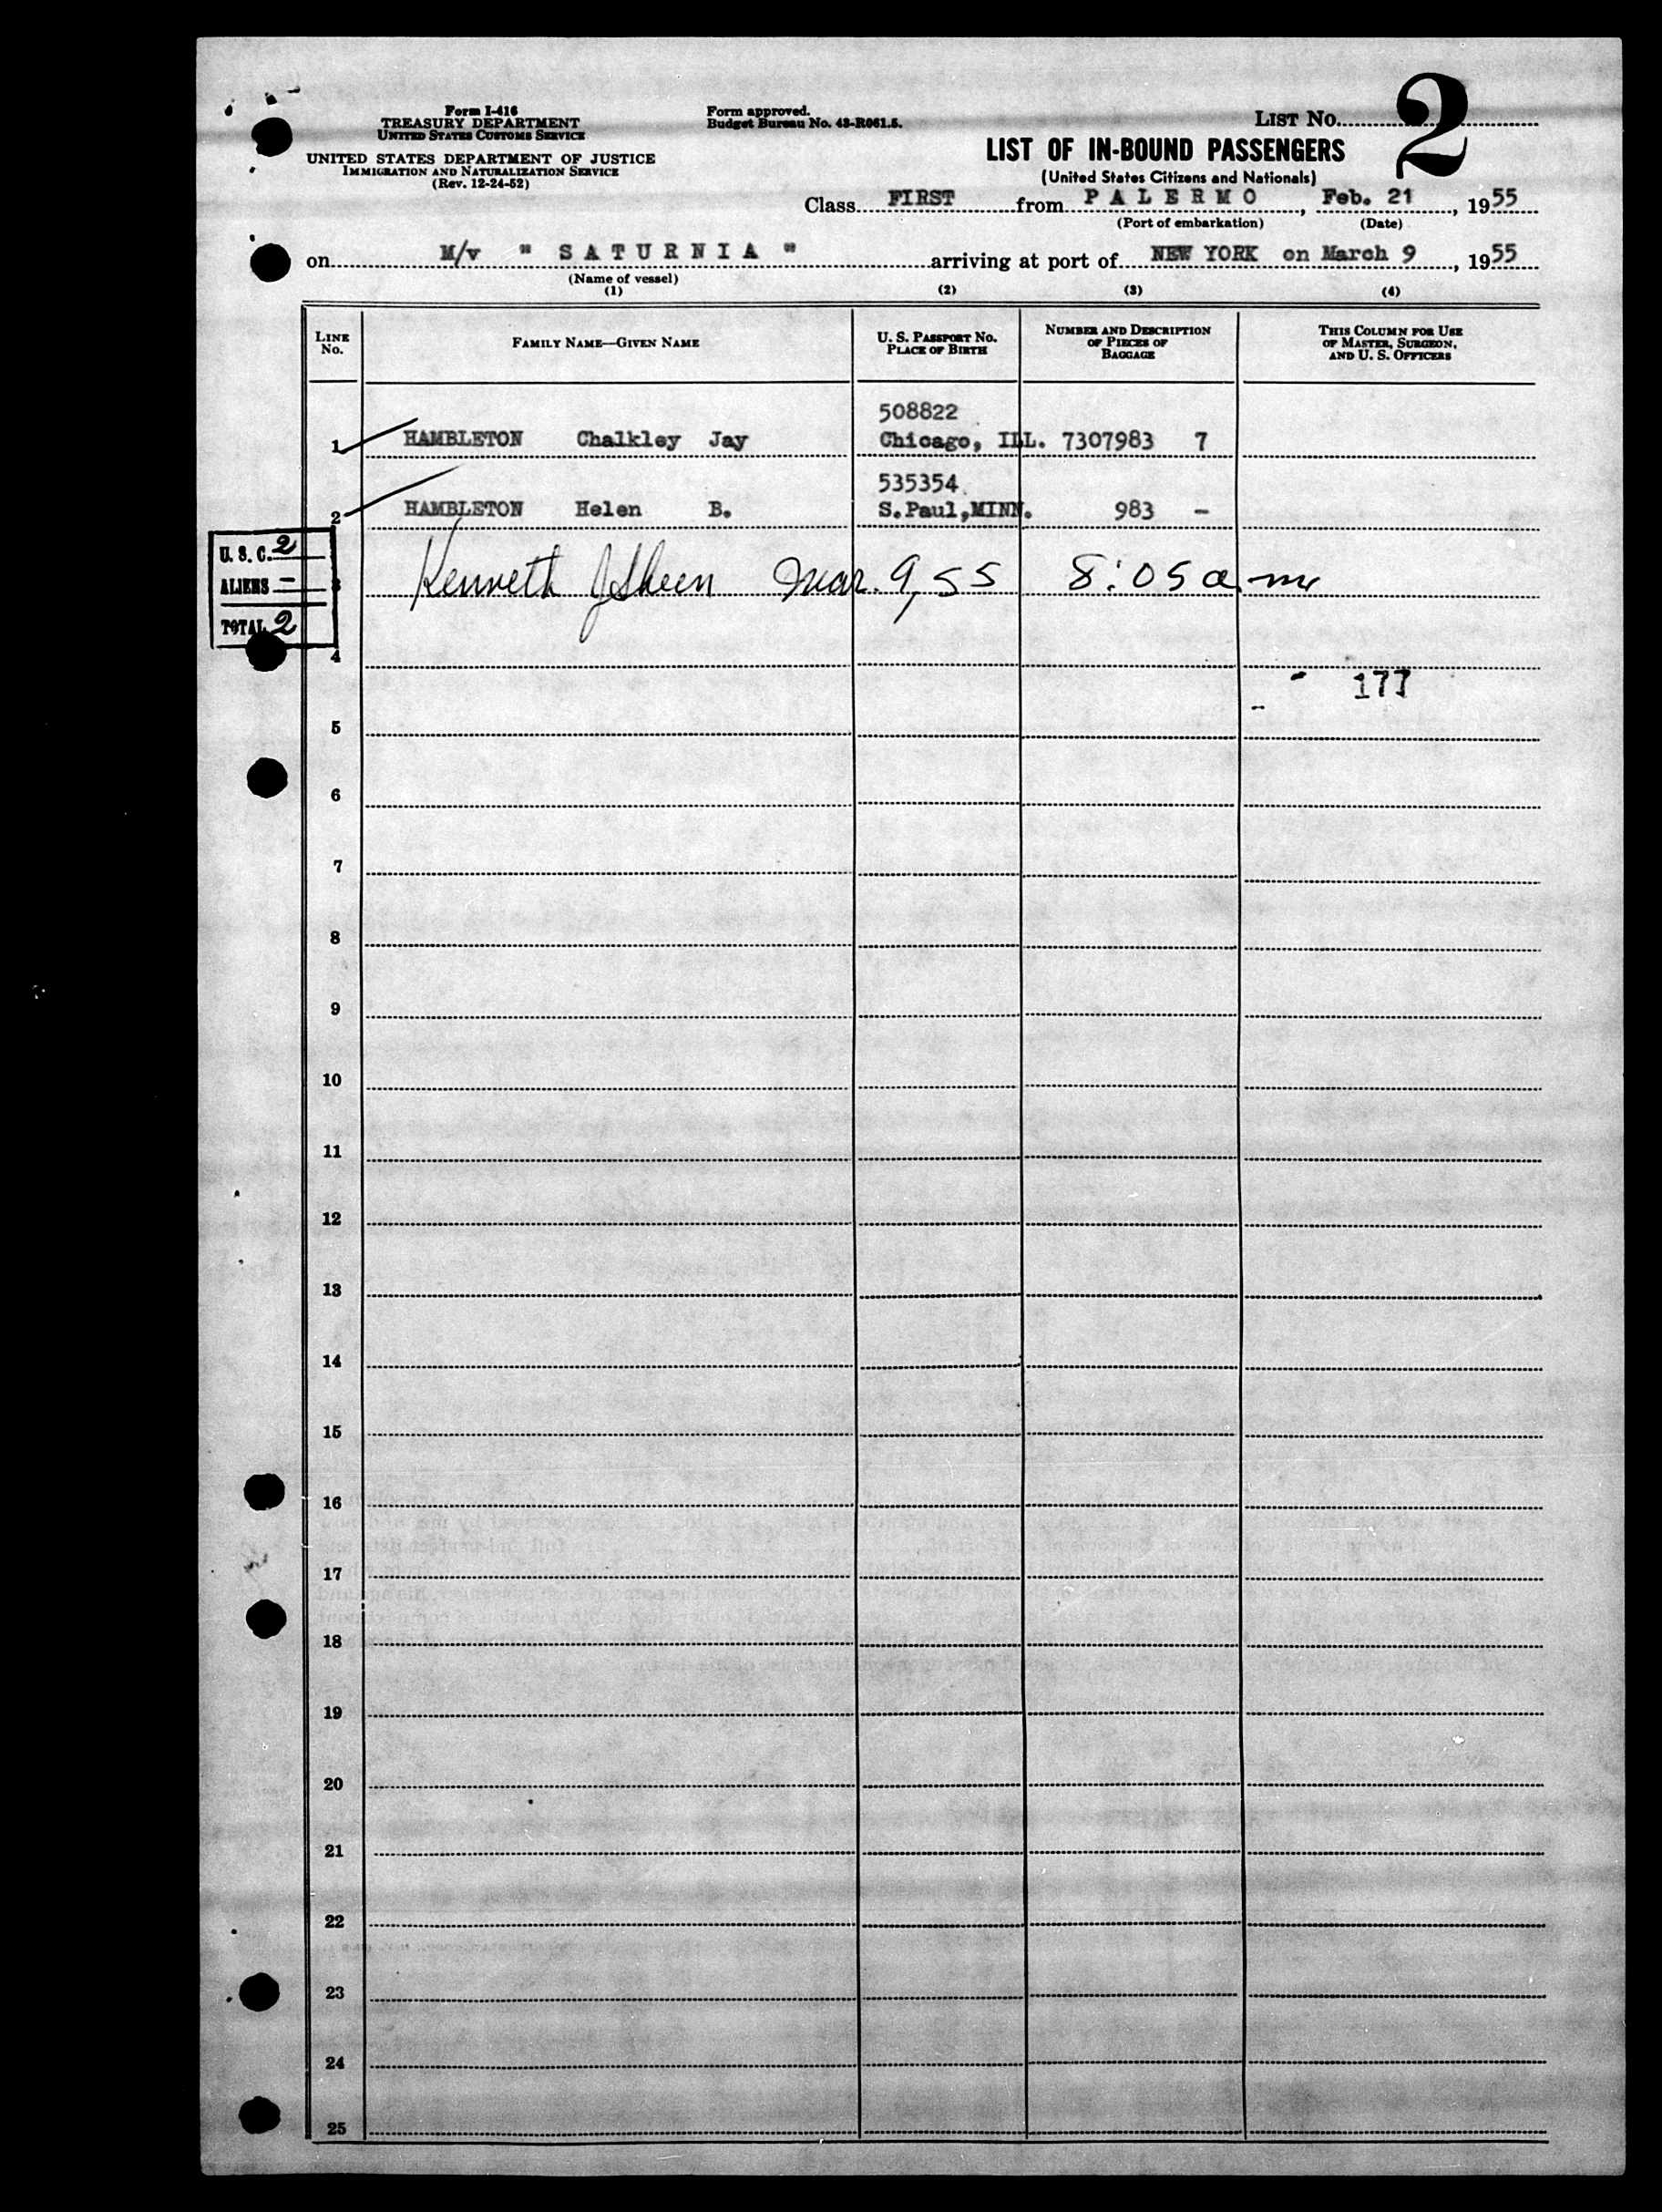 Form I-416
TREASURY DEPARTMENT
UNITED STATES CUSTOMS SERVICE
UNITED STATES DEPARTMENT OF JUSTICE
IMMIGRATION AND NATURALIZATION SERVICE
(Rev. 12-24-52)
Form approved.
Budget Bureau No. 43-R061.5.
LIST NO. 2
LIST OF IN-BOUND PASSENGERS
(United States Citizens and Nationals)
Class FIRST from PALERMO, Feb. 21, 1955
(Port of embarkation) (Date)
on M/v "SATURNIA" arriving at port of NEW YORK on March 9, 1955
(Name of vessel)
(1) (2) (3) (4)
LINE No. FAMILY NAME—GIVEN NAME U. S. PASSPORT NO. PLACE OF BIRTH NUMBER AND DESCRIPTION OF PIECES OF BAGGAGE THIS COLUMN FOR USE OF MASTER, SURGEON, AND U. S. OFFICERS
508822
1 HAMBLETON Chalkley Jay Chicago, ILL. 7307983 7
535354
2 HAMBLETON Helen B. S.Paul,MINN. 983 -
U. S. C. 2
ALIENS —
TOTAL 2
3 Kenneth J Sheen Mar. 9, 55 8:05 a.m
4
177
5
6
7
8
9
10
11
12
13
14
15
16
17
18
19
20
21
22
23
24
25